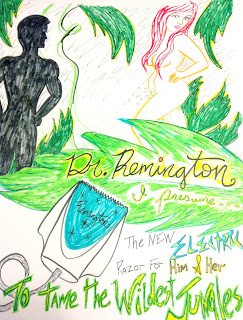 Dr. Remington
I presume...
Remington
The NEW ELECTRIC
Razor For Him & Her
To Tame the Wildest Jungles